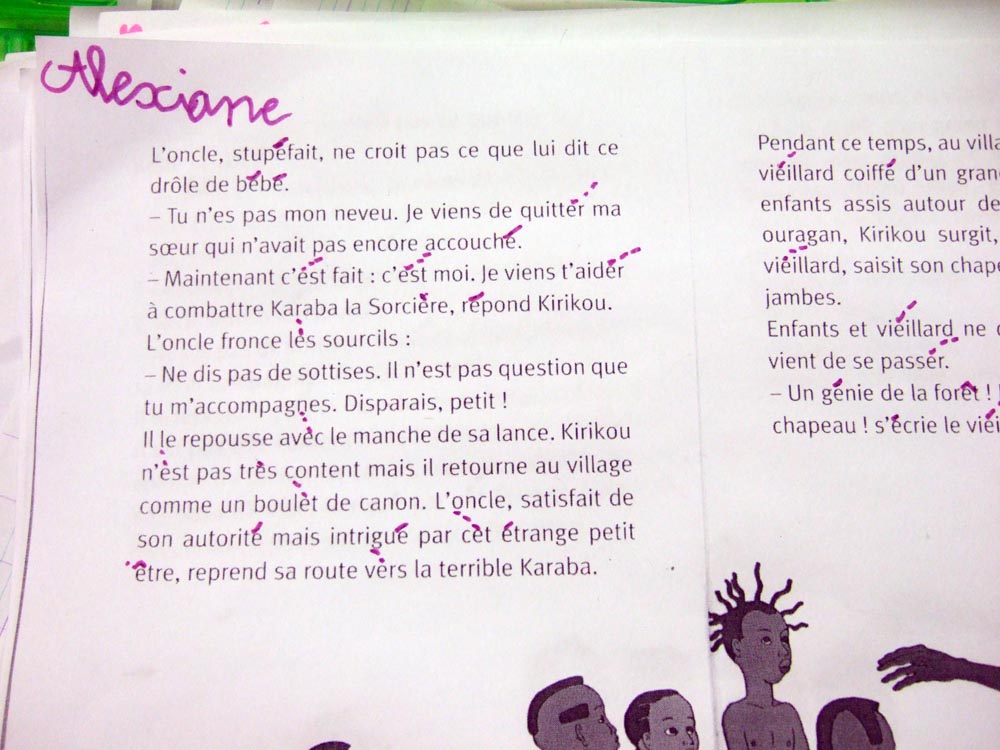 Alexiane
L'oncle, stupéfait, ne croit pas ce que lui dit ce
drôle de bébé.
– Tu n'es pas mon neveu. Je viens de quittér ma
sœur qui n'avait pas encore accouché.
– Maintenant c'ést fait : c'ést moi. Je viens t'aidér
à combattre Karaba la Sorcière, répond Kirikou.
L'oncle fronce lès sourcils :
– Ne dis pas de sottises. Il n'est pas question que
tu m'accompagnes. Disparais, petit !
Il le repousse avèc le manche de sa lance. Kirikou
n'èst pas très content mais il retourne au village
comme un boulèt de canon. L'oncle, satisfait de
son autorité mais intrigué par cèt étrange petit
être, reprend sa route vèrs la terrible Karaba.
Pendant ce temps, au
viéillard coiffé d'un
enfants assis autour
ouragan, Kirikou surgit,
viéillard, saisit son
jambes.
Enfants et viéillard ne
vient de se passér.
– Un génie de la forêt !
chapeau ! s'écrie le